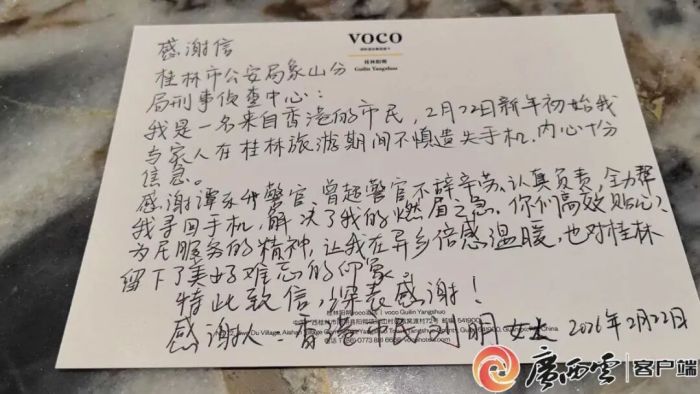 VOCO
桂林阳朔
Guilin Yangshuo
感谢信
桂林市公安局象山分
局刑事侦查中心:
我是一名来自香港的市民,2月22日新年初始我
与家人在桂林旅游期间不慎遗失手机,内心十分
信急。
感谢谭永 警官、曾超警官不辞辛劳、认真负责,全力帮
我寻回手机,解决了我的燃眉之急。你们高效贴心、
为民服务的精神,让我在异乡倍感温暖,也对桂林
留下了美好难忘的印象
特此致信,深表感谢!
桂林阳朔voco酒店 | voco Guilin Yangshuo
感谢人:香港 女士 2026年2月22日
广西云 客户端